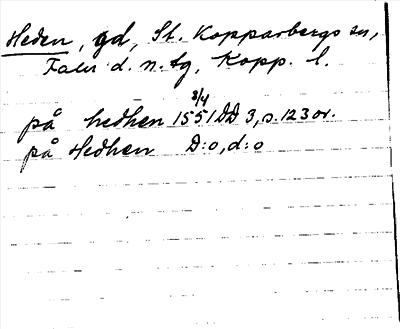 Heden, gd, St. Kopparbergs sn,
Falu d. n. tg, Kopp. l.
3/4
på hedhen 1551 DD 3, s. 123 or.
på Hedhen D:o, d:o